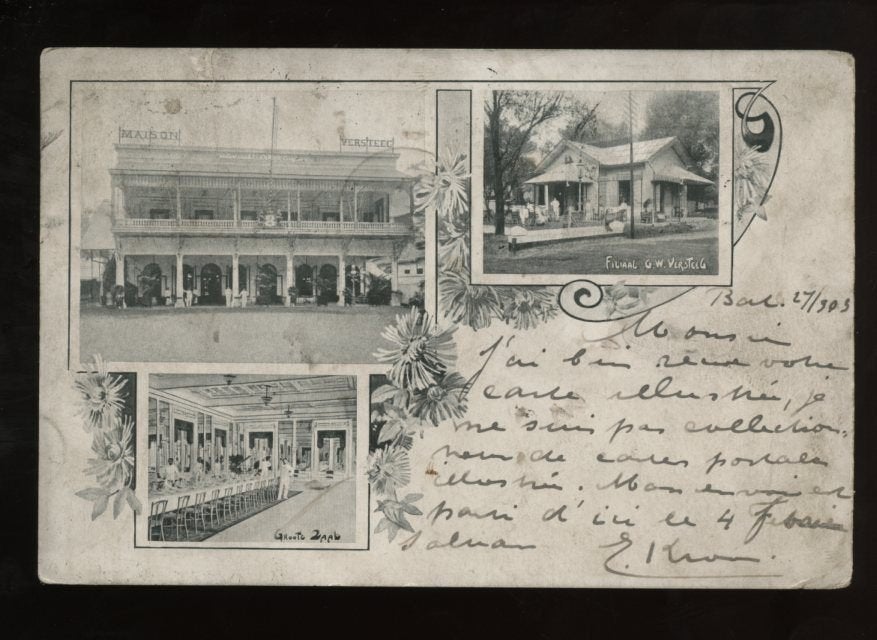 MAISON VERSTEEG
FILIAAL G.W. VERSTEEG
GROOTE ZAAL
Bat. 27/903
Monsieur
J'ai bien reçu votre
carte illustrée, je
ne suis pas collection-
neur de cartes postales
illustrée. Mon envoi est
parti d'ici le 4 Fevrier
E. Krom.